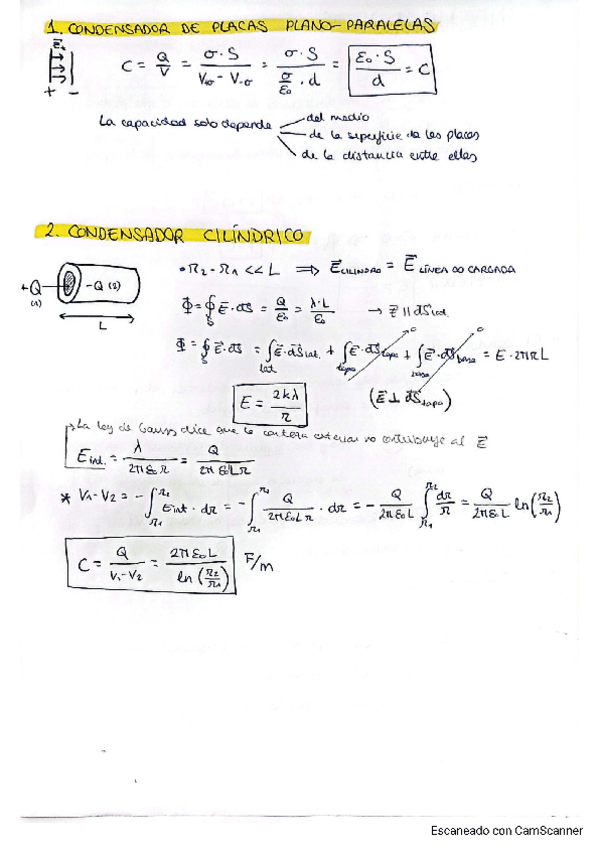 1. CONDENSADOR DE PLACAS PLANO-PARALELAS
E⃗
+ -
C = Q/V = σ·S / (V+σ - V-σ) = σ·S / (σ/ε₀ · d) = ε₀·S / d = C
La capacidad solo depende
del medio
de la superficie de las placas
de la distancia entre ellas
2. CONDENSADOR CILÍNDRICO
+Q (1)
-Q (2)
L
• r₂ - r₁ << L ⟹ E⃗ CILINDRO = E⃗ LÍNEA ∞ CARGADA
Φ = ∮s E⃗·dS = Q/ε₀ = λ·L/ε₀ → E⃗ ∥ dS⃗ lat.
Φ = ∮s E⃗·dS = ∫lat E⃗·dS⃗ lat. + ∫tapa E⃗·dS⃗ tapa + ∫base E⃗·dS⃗ base = E·2πrL
0 0
E = 2kλ / r
(E⃗ ⊥ dS⃗ tapa)
La ley de Gauss dice que la corteza exterior no contribuye al E⃗
E int. = λ / 2πε₀r = Q / 2πε₀Lr
* V₁-V₂ = - ∫r₁ r₂ E int · dr = - ∫r₁ r₂ Q / 2πε₀Lr · dr = - Q / 2πε₀L ∫r₁ r₂ dr/r = Q / 2πε₀L ln(r₂/r₁)
C = Q / V₁-V₂ = 2πε₀L / ln(r₂/r₁) F/m
Escaneado con CamScanner